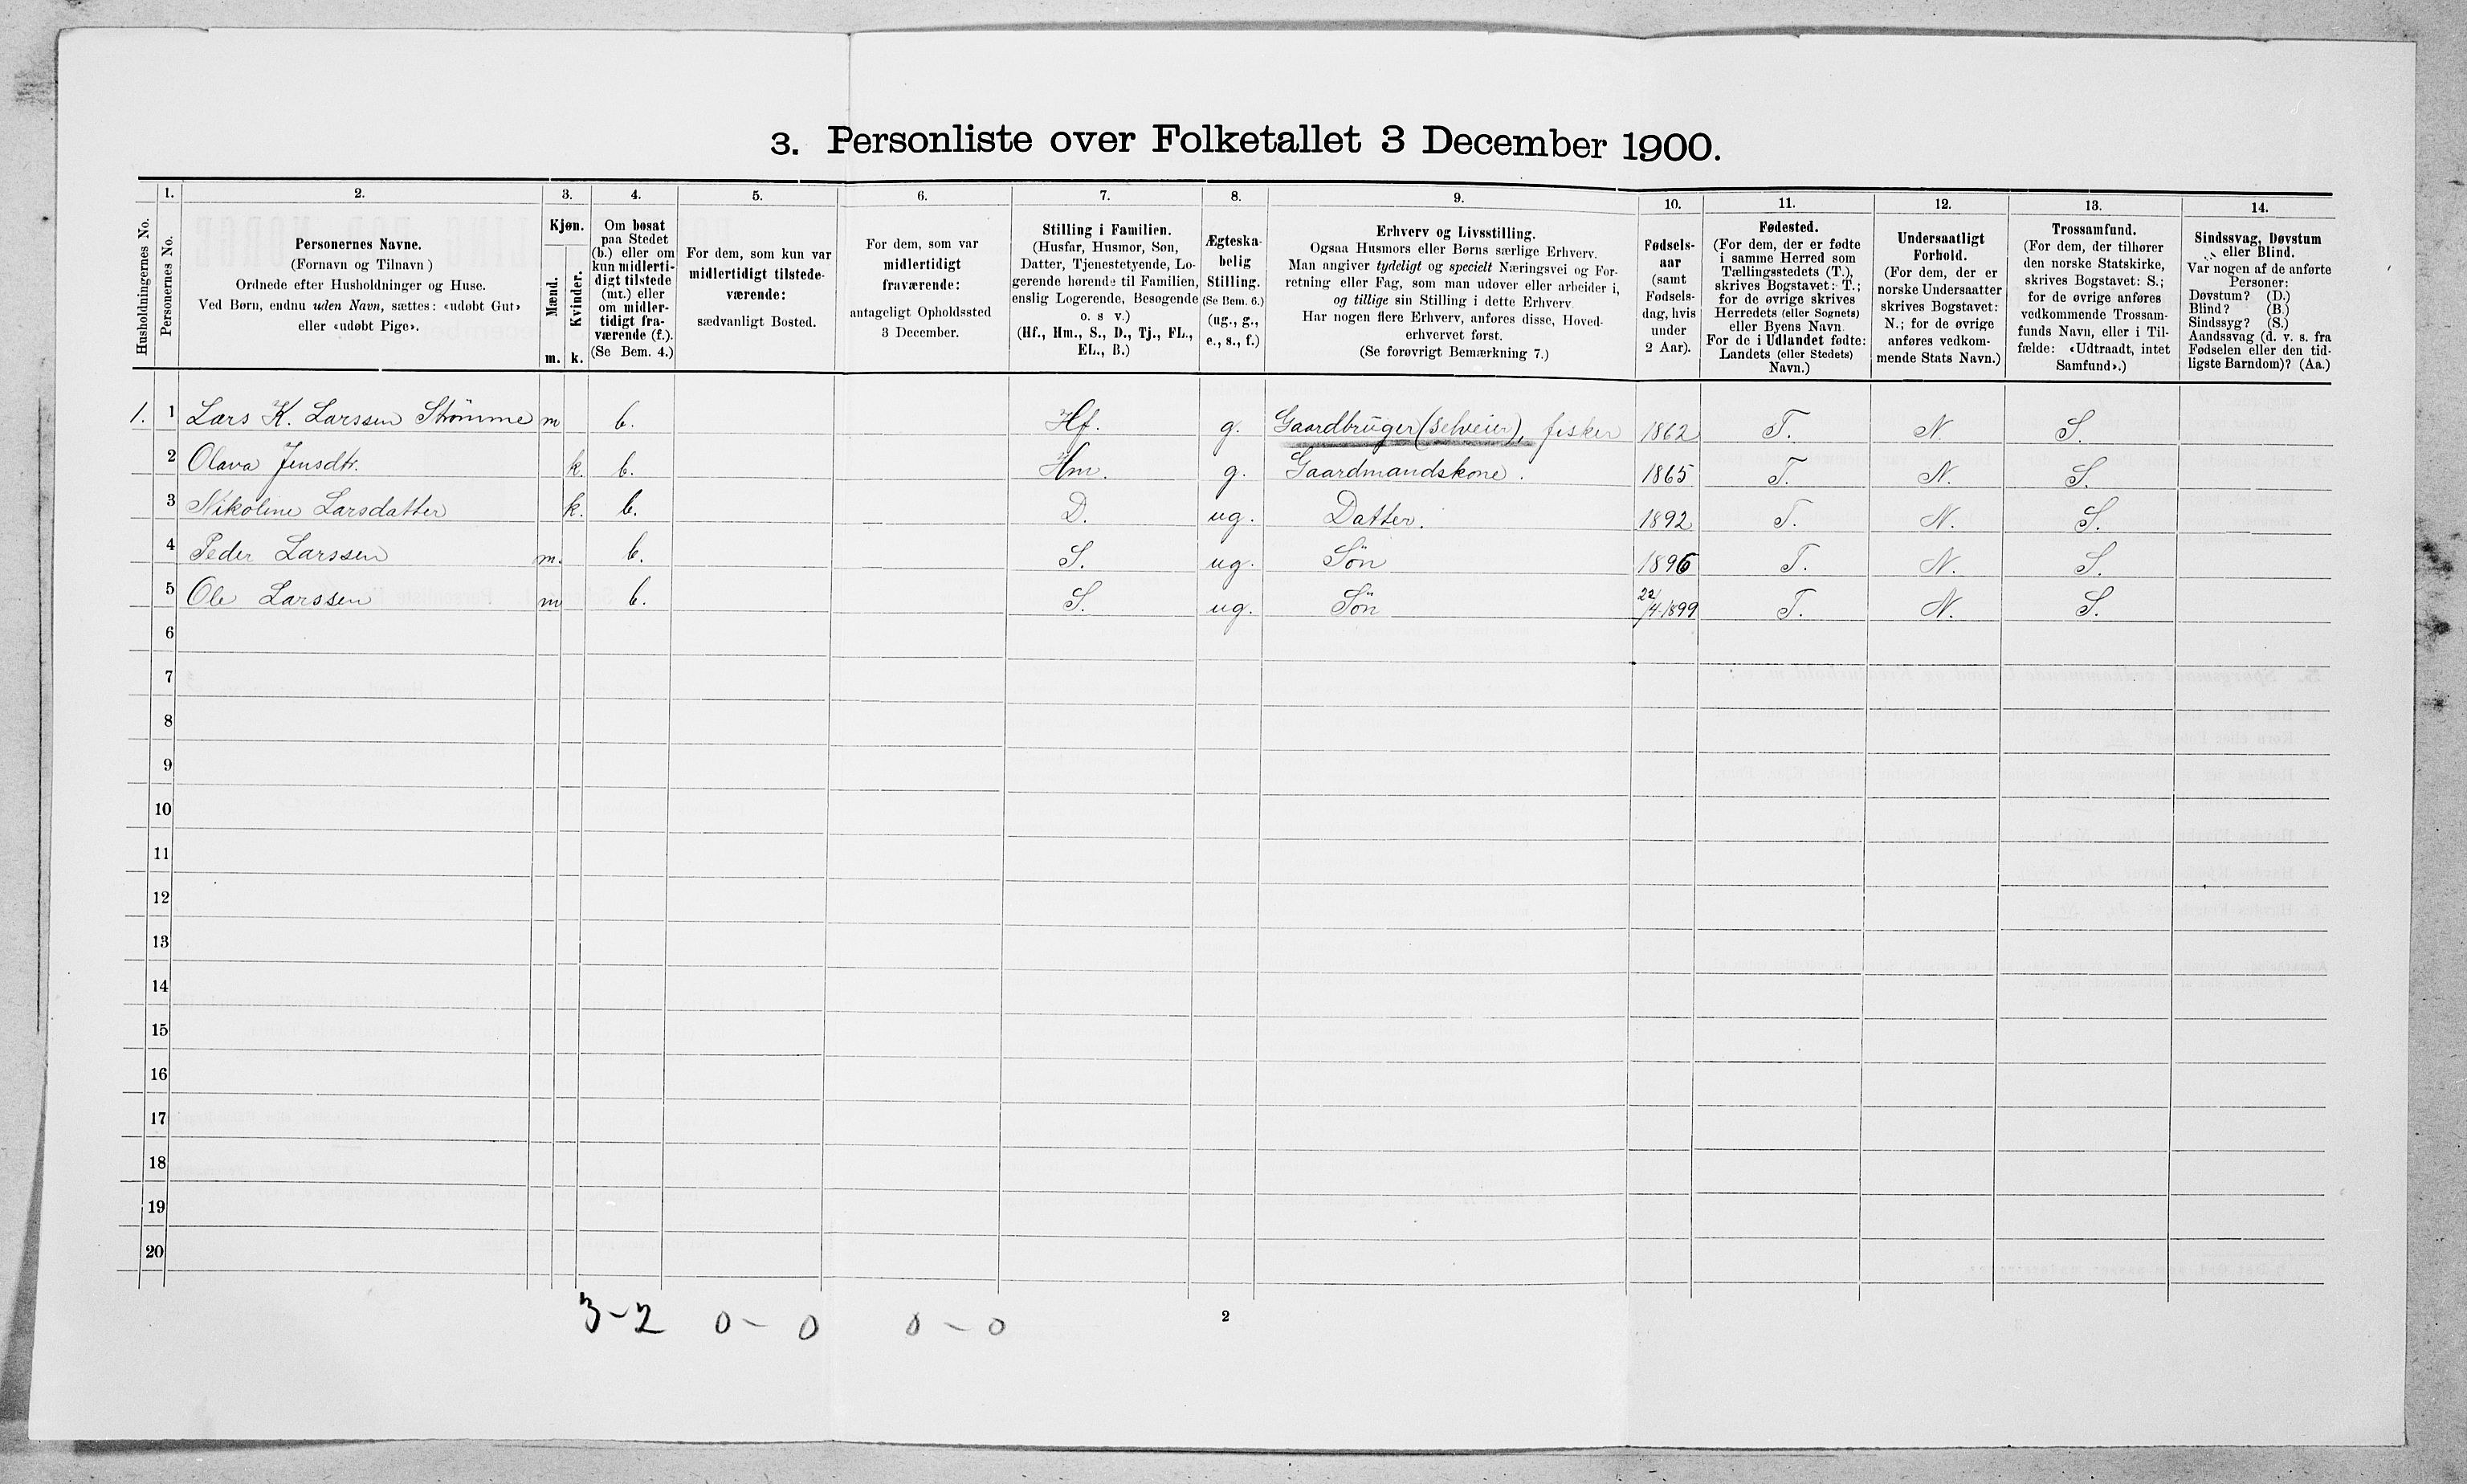 3. Personliste over Folketallet 3 December 1900.
1. 2. 3. 4. 5. 6. 7. 8. 9. 10. 11. 12. 13. 14.
Husholdningernes No.
Personernes No.
Personernes Navne.
(Fornavn og Tilnavn)
Ordnede efter Husholdninger og Huse.
Ved Børn, endnu uden Navn, sættes: «udøbt Gut»
eller «udøbt Pige».
Kjøn.
Mænd.
Kvinder.
m. k.
Om bosat
paa Stedet
(b.) eller om
kun midlerti-
digt tilstede
(mt.) eller
om midler-
tidigt fra-
værende (f.).
(Se Bem. 4.)
For dem, som kun var
midlertidigt tilstede-
værende:
sædvanligt Bosted.
For dem, som var
midlertidigt
fraværende:
antageligt Opholdssted
3 December.
Stilling i Familien.
(Husfar, Husmor, Søn,
Datter, Tjenestetyende, Lo-
gerende hørende til Familien,
enslig Logerende, Besøgende
o. s v.)
(Hf., Hm., S., D., Tj., FL.,
EL., B.)
Ægteska-
belig
Stilling.
(Se Bem. 6.)
(ug., g.,
e., s., f.)
Erhverv og Livsstilling.
Ogsaa Husmors eller Børns særlige Erhverv.
Man angiver tydeligt og specielt Næringsvei og For-
retning eller Fag, som man udøver eller arbeider i,
og tillige sin Stilling i dette Erhverv.
Har nogen flere Erhverv, anføres disse, Hoved-
erhvervet først.
(Se forøvrigt Bemærkning 7.)
Fødsels-
aar
(samt
Fødsels-
dag, hvis
under
2 Aar).
Fødested.
(For dem, der er fødte
i samme Herred som
Tællingsstedets (T.),
skrives Bogstavet: T.;
for de øvrige skrives
Herredets (eller Sognets)
eller Byens Navn.
For de i Udlandet fødte:
Landets (eller Stedets)
Navn.)
Undersaatligt
Forhold.
(For dem, der er
norske Undersaatter
skrives Bogstavet:
N.; for de øvrige
anføres vedkom-
mende Stats Navn.)
Trossamfund.
(For dem, der tilhører
den norske Statskirke,
skrives Bogstavet: S.;
for de øvrige anføres
vedkommende Trossam-
funds Navn, eller i Til-
fælde: «Udtraadt, intet
Samfund».)
Sindssvag, Døvstum
eller Blind.
Var nogen af de anførte
Personer:
Døvstum? (D.)
Blind? (B.)
Sindssyg? (S.)
Aandssvag (d. v. s. fra
Fødselen eller den tid-
ligste Barndom)? (Aa.)
1. 1 Lars K. Larssen Strömme m b. Hf. g. Gaardbruger (Selveier), fisker 1862 T. N. S.
2 Olava Jensdtr. k. b. Hm. g. Gaardmandskone. 1865 T. N. S.
3 Nikoline Larsdatter k. b. D. ug. Datter. 1892 T. N. S.
4 Peder Larssen m. b. S. ug. Søn 1896 T. N. S.
5 Ole Larssen m b. S. ug. Søn 22/4 1899 T. N. S.
6
7
8
9
10
11
12
13
14
15
16
17
18
19
20
3-2 0-0 0-0
2